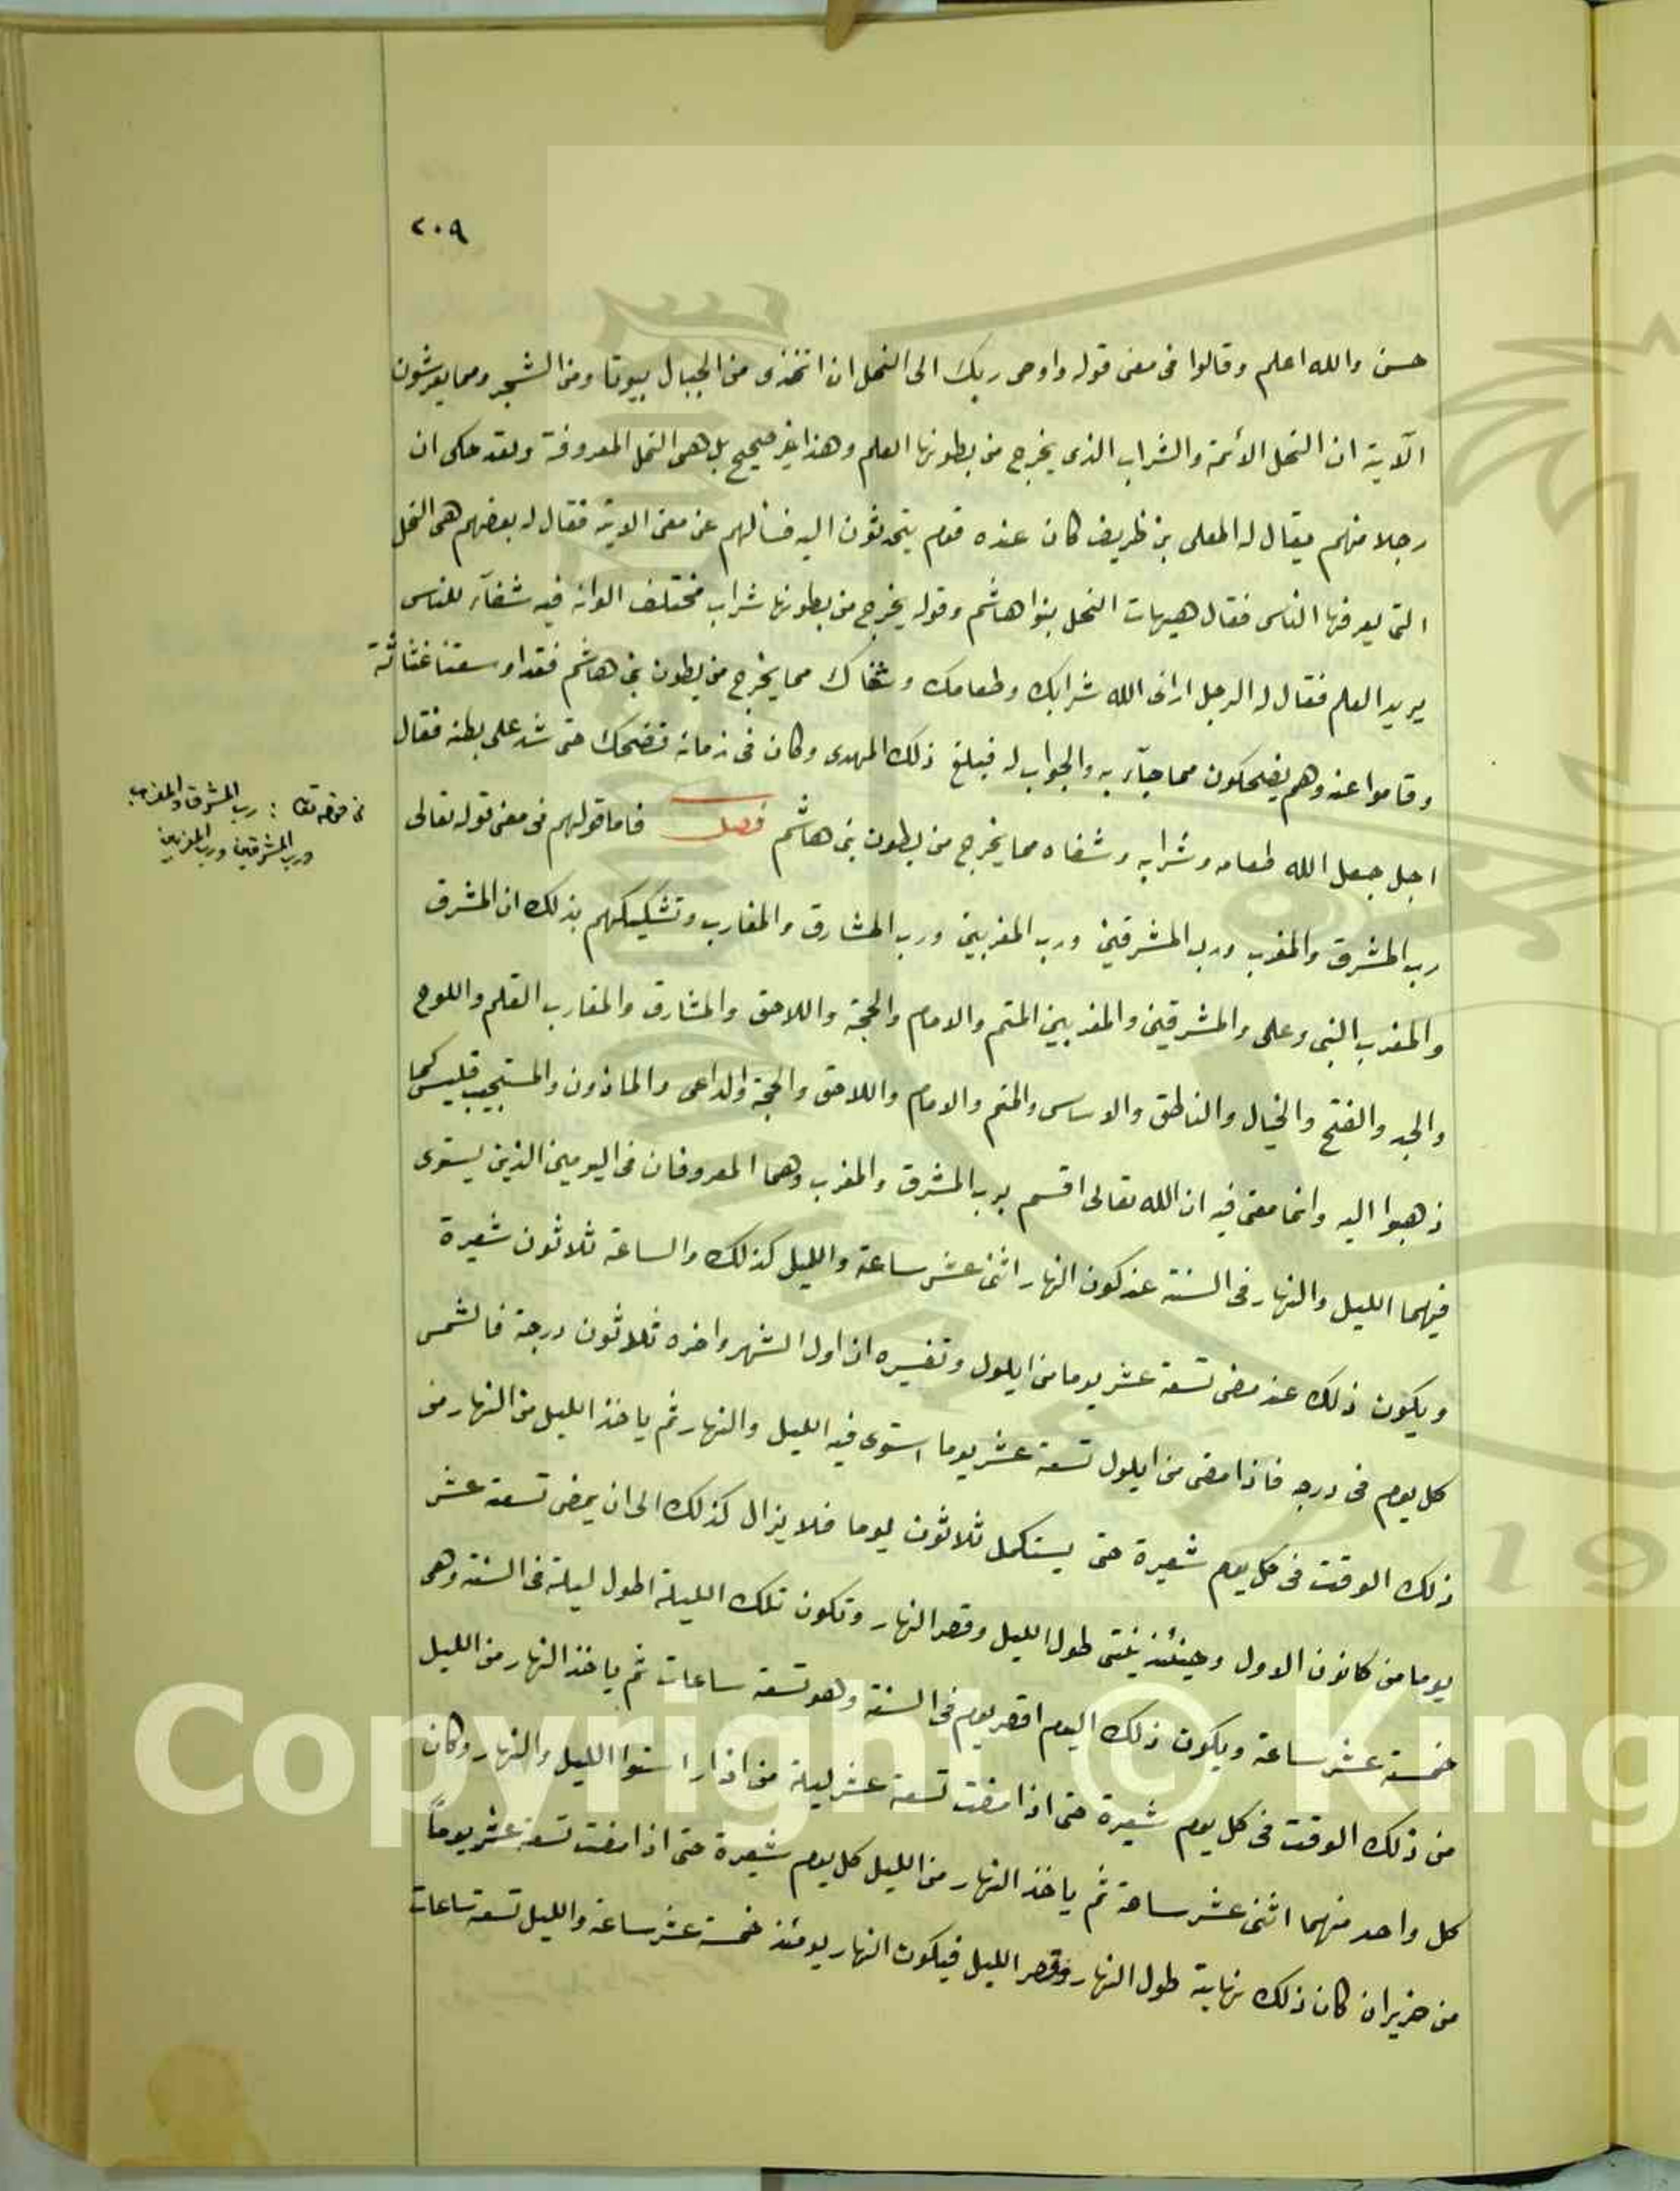 ٢٠٩
حسن والله اعلم وقالوا فى معنى قوله واوحى ربك الى النحل ان اتخذى من الجبال بيوتا ومن الشجر ومما يعرشون
الآية ان النحل الأئمة والشراب الذى يخرج من بطونها العلم وهذا غير صحيح بل هى النحل المعروفة ولقد حكى ان
رجلا منهم يقال له المعلى بن ظريف كان عنده قوم يتحدثون اليه فسألهم عن معنى الاية فقال له بعضهم هى النحل
التى يعرفها الناس فقال هيهات النحل بنوا هاشم وقوله يخرج من بطونها شراب مختلف الوانه فيه شفآء للناس
يريد العلم فقال له الرجل ارانى الله شرابك وطعامك وشفاك مما يخرج من بطون بنى هاشم فقد اوسعتنا غثاثة
وقاموا عنه وهم يضحكون مما جآء به والجواب له فبلغ ذلك المهدى وكان فى زمانه فضحك حتى شد على بطنه فقال
اجل جعل الله طعامه وشرابه وشفاه مما يخرج من بطون بنى هاشم فصل فاما قولهم فى معنى قوله تعالى
فى قوله تعا : رب المشرق والمغرب
ورب المشرقين ورب المغربين
رب المشرق والمغرب ورب المشرقين ورب المغربين ورب المشارق والمغارب وتشكيكهم بذلك ان المشرق
والمغرب النبى وعلى والمشرقين والمغربين المتم والامام والحجة واللاحق والمشارق والمغارب القلم واللوح
والجد والفتح والخيال والناطق والاساس والمتم والامام واللاحق والحجة والداعى والماذون والمستجيب فليس كما
ذهبوا اليه وانما معنى فيه ان الله تعالى اقسم برب المشرق والمغرب وهما المعروفان فى اليومين الذين يستوى
فيهما الليل والنهار فى السنة عند كون النهار اثنى عشر ساعة والليل كذلك والساعة ثلاثون شعيرة
ويكون ذلك عند مضى تسعة عشر يوما من ايلول وتفسيره ان اول الشهر واخره ثلاثون درجة فالشمس
كل يوم فى درجه فاذا مضى من ايلول تسعة عشر يوما استوى فيه الليل والنهار ثم ياخذ الليل من النهار من
ذلك الوقت فى كل يوم شعيرة حتى يستكمل ثلاثون يوما فلا يزال كذلك الى ان يمضى تسعة عشر
يوما من كانون الاول وحينئذ ينتهى طول الليل وقصر النهار وتكون تلك الليلة اطول ليلة فى السنة وهى
خمسة عشر ساعة ويكون ذلك اليوم اقصر يوم فى السنة وهو تسعة ساعات ثم ياخذ النهار من الليل
من ذلك الوقت فى كل يوم شعيرة حتى اذا مضت تسعة عشر ليلة من اذار استوا الليل والنهار وكان
كل واحد منهما اثنى عشر ساعة ثم ياخذ النهار من الليل كل يوم شعيرة حتى اذا مضت تسعة عشر يوماً
من حزيران كان ذلك نهاية طول النهار وقصر الليل فيكون النهار يومئذ خمسة عشر ساعة والليل تسعة ساعات
Copyright © King
19